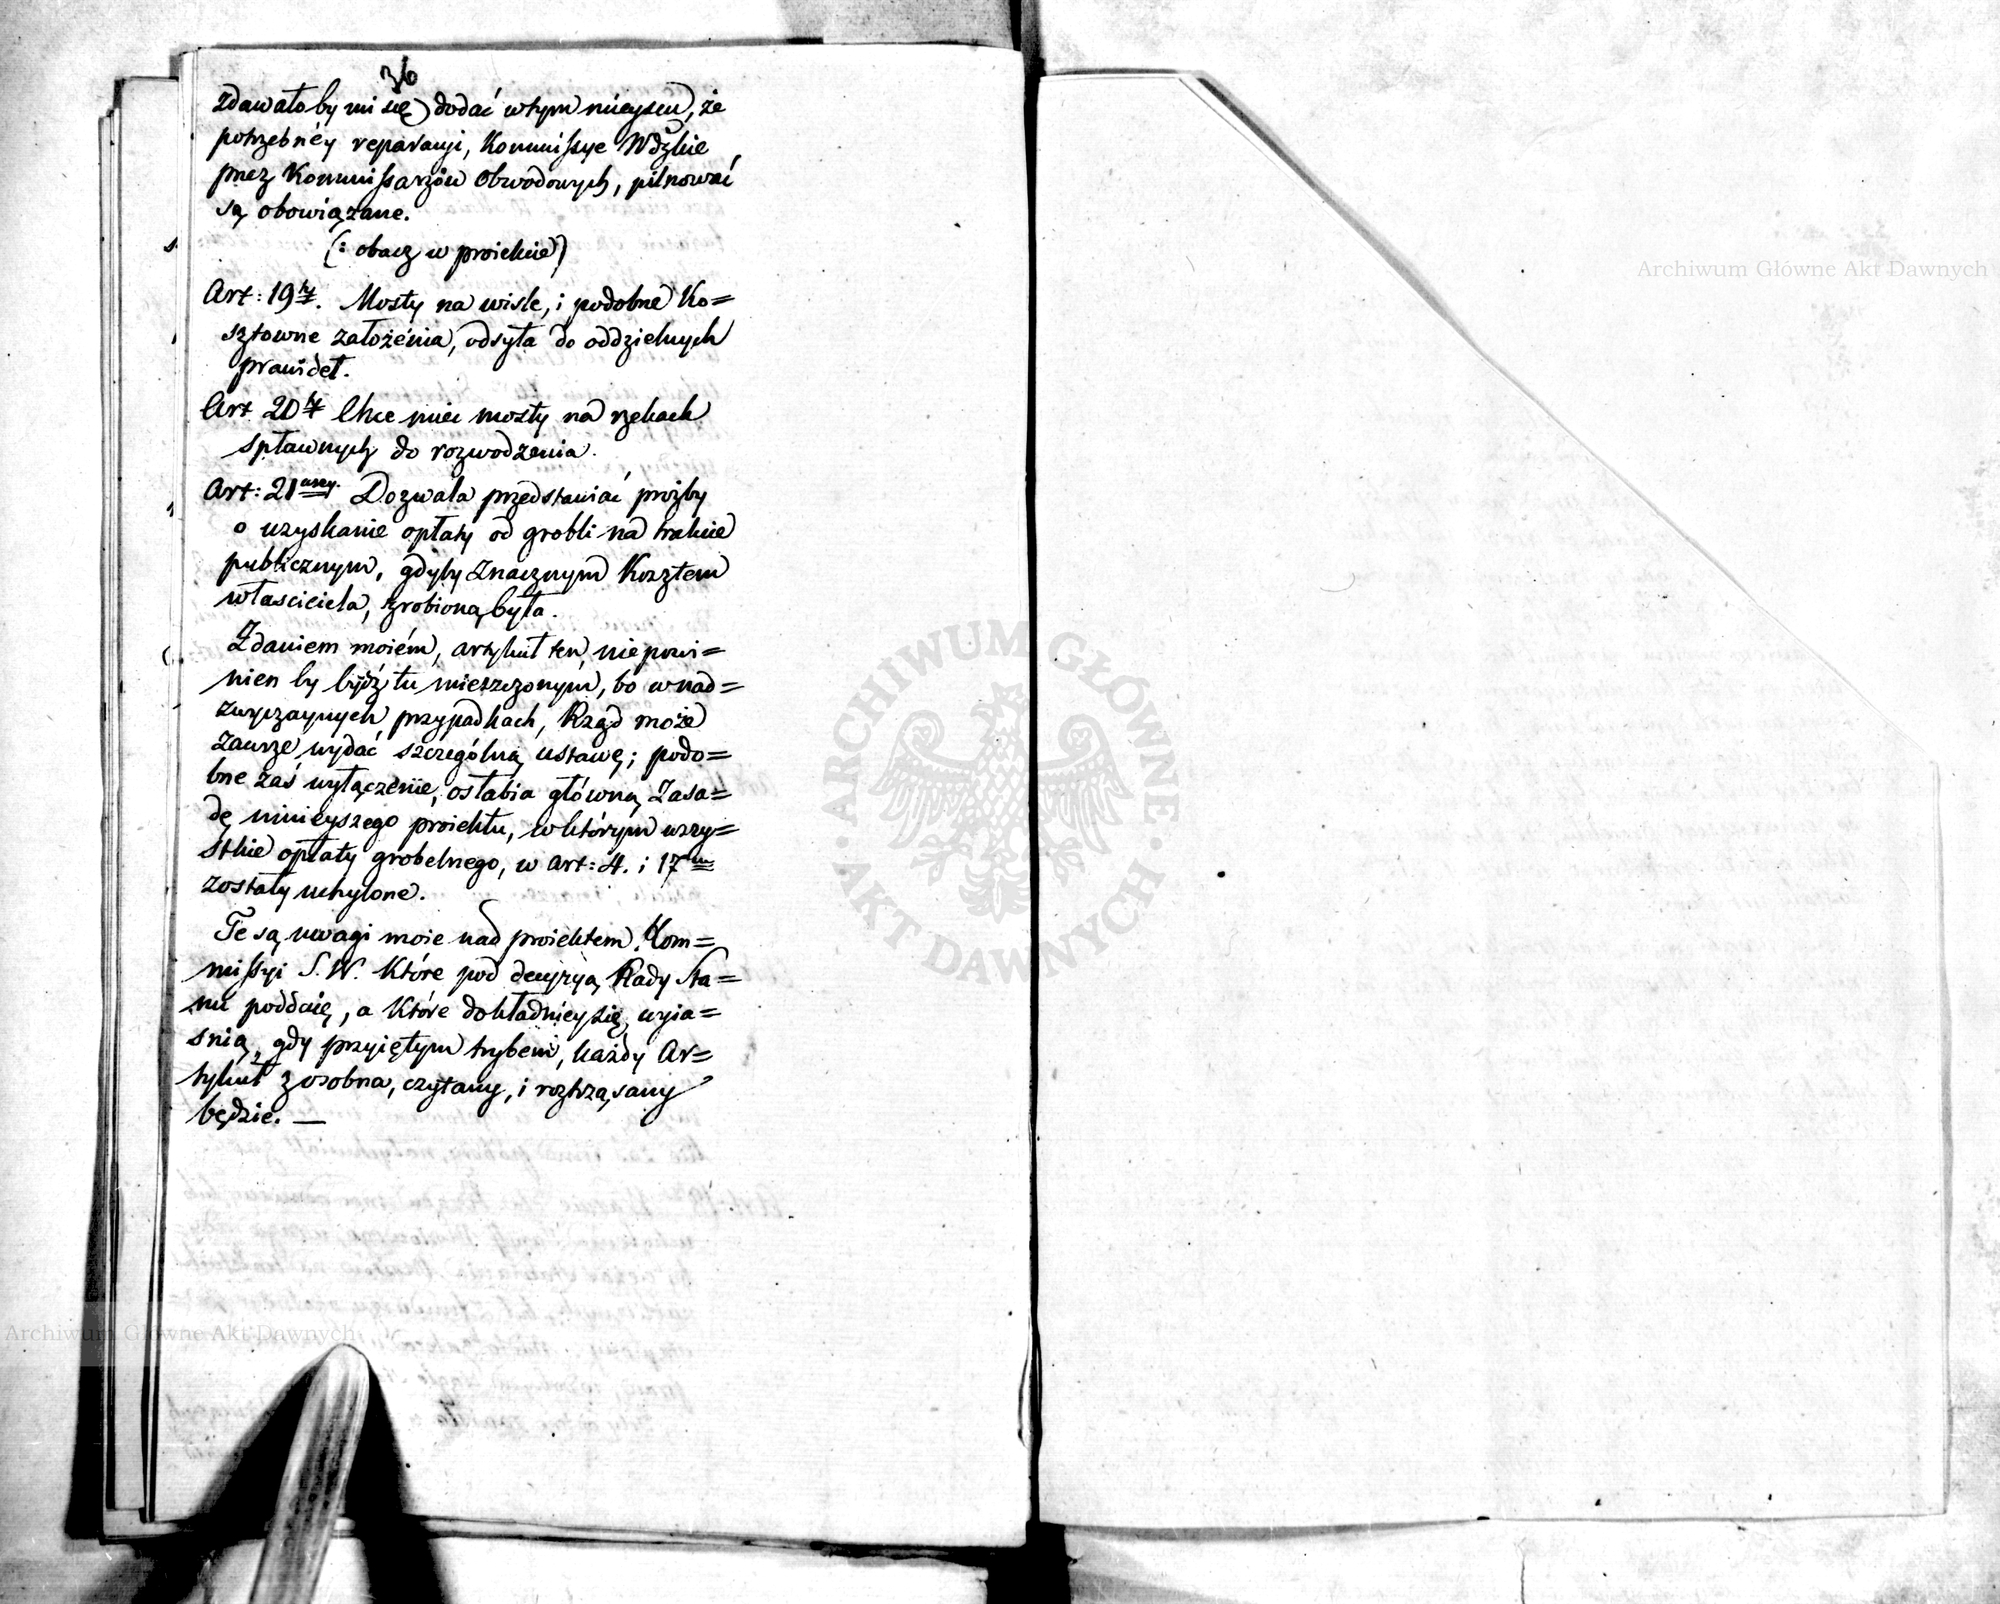 36
zdawałoby mi się dodać w tym mieyscu, że
potrzebnéy reparacyi, Kommissye Wdzkie
przez Kommissarzów Obwodowych, pilnować
są obowiązane.
(: obacz w proiekcie)
Art: 19ty. Mosty na wisle, i podobne Ko=
sztowne założenia, odsyła do oddzielnych
prawideł.
Art 20ty Chce mieć mosty na rzekach
spławnych do rozwodzenia.
Art: 21wszy. Dozwala przedstawiać prożby
o uzyskanie opłaty od grobli na trakcie
publicznym, gdyby znacznym Kosztem
własciciela, zrobioną była.
Zdaniem moiém, artykuł ten, nie powi=
nien by bydź tu mieszczonym, bo w nad=
zwyczaynych przypadkach, Rząd może
zawsze wydać szczególną ustawę; podo=
bne zaś wyłączenie, osłabia główną zasa=
dę ninieyszego proiektu, w którym wszy=
stkie opłaty grobelnego, w art: 4. i 17m
zostały uchylone.
Te są uwagi moie nad proiektem Kom=
missyi S. W. Które pod decyzyą Rady Sta=
nu poddaię, a Które dokładniey się wyia=
snią, gdy przyiętym trybem, każdy Ar=
tykuł z osobna, czytany, i roztrząsany
będzie. —
Archiwum Główne Akt Dawnych
Archiwum Główne Akt Dawnych
ARCHIWUM GŁÓWNE · AKT DAWNYCH ·